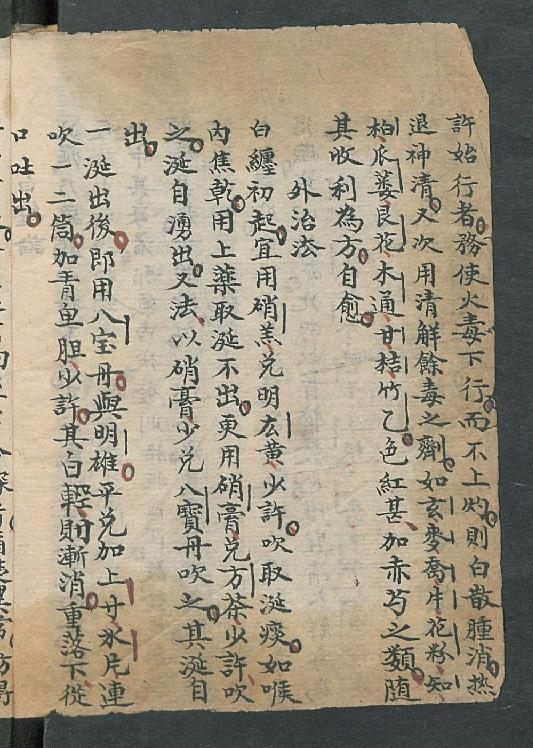 許始行者務使火毒下行而不上灼則白散腫消热
退神清又次用清解餘毒之劑如玄麥喬片花粉知
柏瓜蔞艮花木通甘桔竹乙色紅甚加赤芍之類随
其收利為方自愈
外治法
白纏初起宜用硝羔兑明広黄少許吹取涎痰如喉
内焦乾用上藥取涎不出更用硝膏兑方茶少許吹
之涎自湧出又法以硝膏少兑八寶丹吹之其涎自
出
一涎出後即用八宝丹與明雄平兑加上廿氷片連
吹一二筒加青鱼胆少許其白輕則漸消重落下從
口吐出